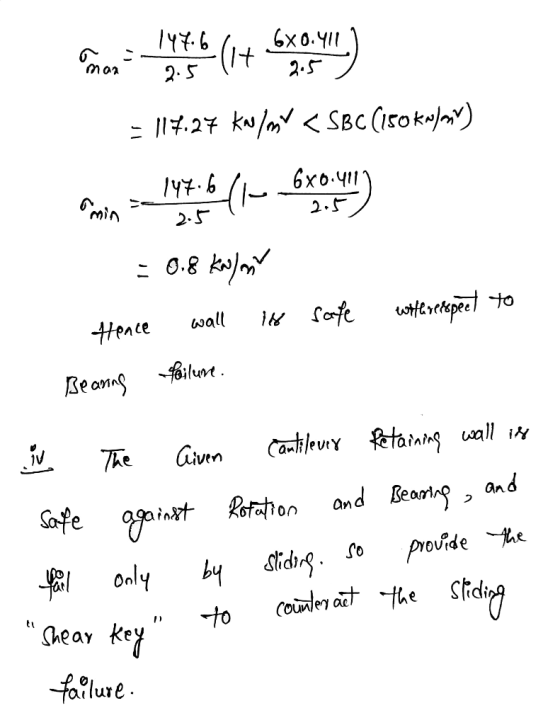 σmax = 147.6/2.5 (1 + 6×0.411/2.5)
= 117.27 kN/m² < SBC (150 kN/m²)
σmin = 147.6/2.5 (1 - 6×0.411/2.5)
= 0.8 kN/m²
Hence wall is safe withrespect to
Bearing failure.
iv The Given Cantilever Retaining wall is
Safe against Rotation and Bearing, and
fail only by sliding. so provide the
"Shear key" to counteract the sliding
failure.